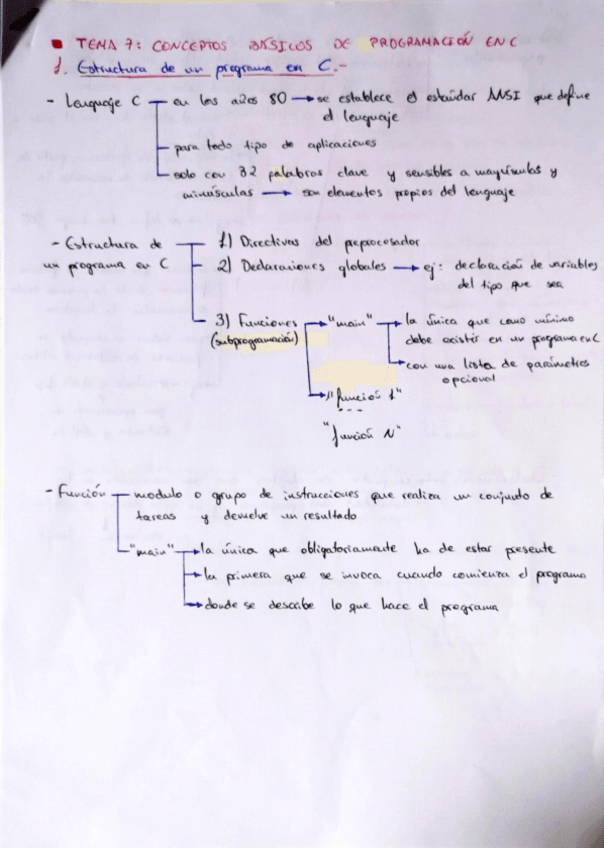 TEMA 7: CONCEPTOS BÁSICOS DE PROGRAMACIÓN EN C
1. Estructura de un programa en C.-
- Lenguaje C — en los años 80 → se establece el estándar ANSI que define
el lenguaje
para todo tipo de aplicaciones
solo con 32 palabras clave y sensibles a mayúsculas y
minúsculas → son elementos propios del lenguaje
- Estructura de
un programa en C
1) Directivas del preprocesador
2) Declaraciones globales → ej: declaración de variables
del tipo que sea
3) Funciones
(subprogramación)
"main" → la única que como mínimo
debe existir en un programa en C
con una lista de parámetros
opcional
"función 1"
- - -
"función N"
- Función — modulo o grupo de instrucciones que realiza un conjunto de
tareas y devuelve un resultado
"main" → la única que obligatoriamente ha de estar presente
→ la primera que se invoca cuando comienza el programa
→ donde se describe lo que hace el programa